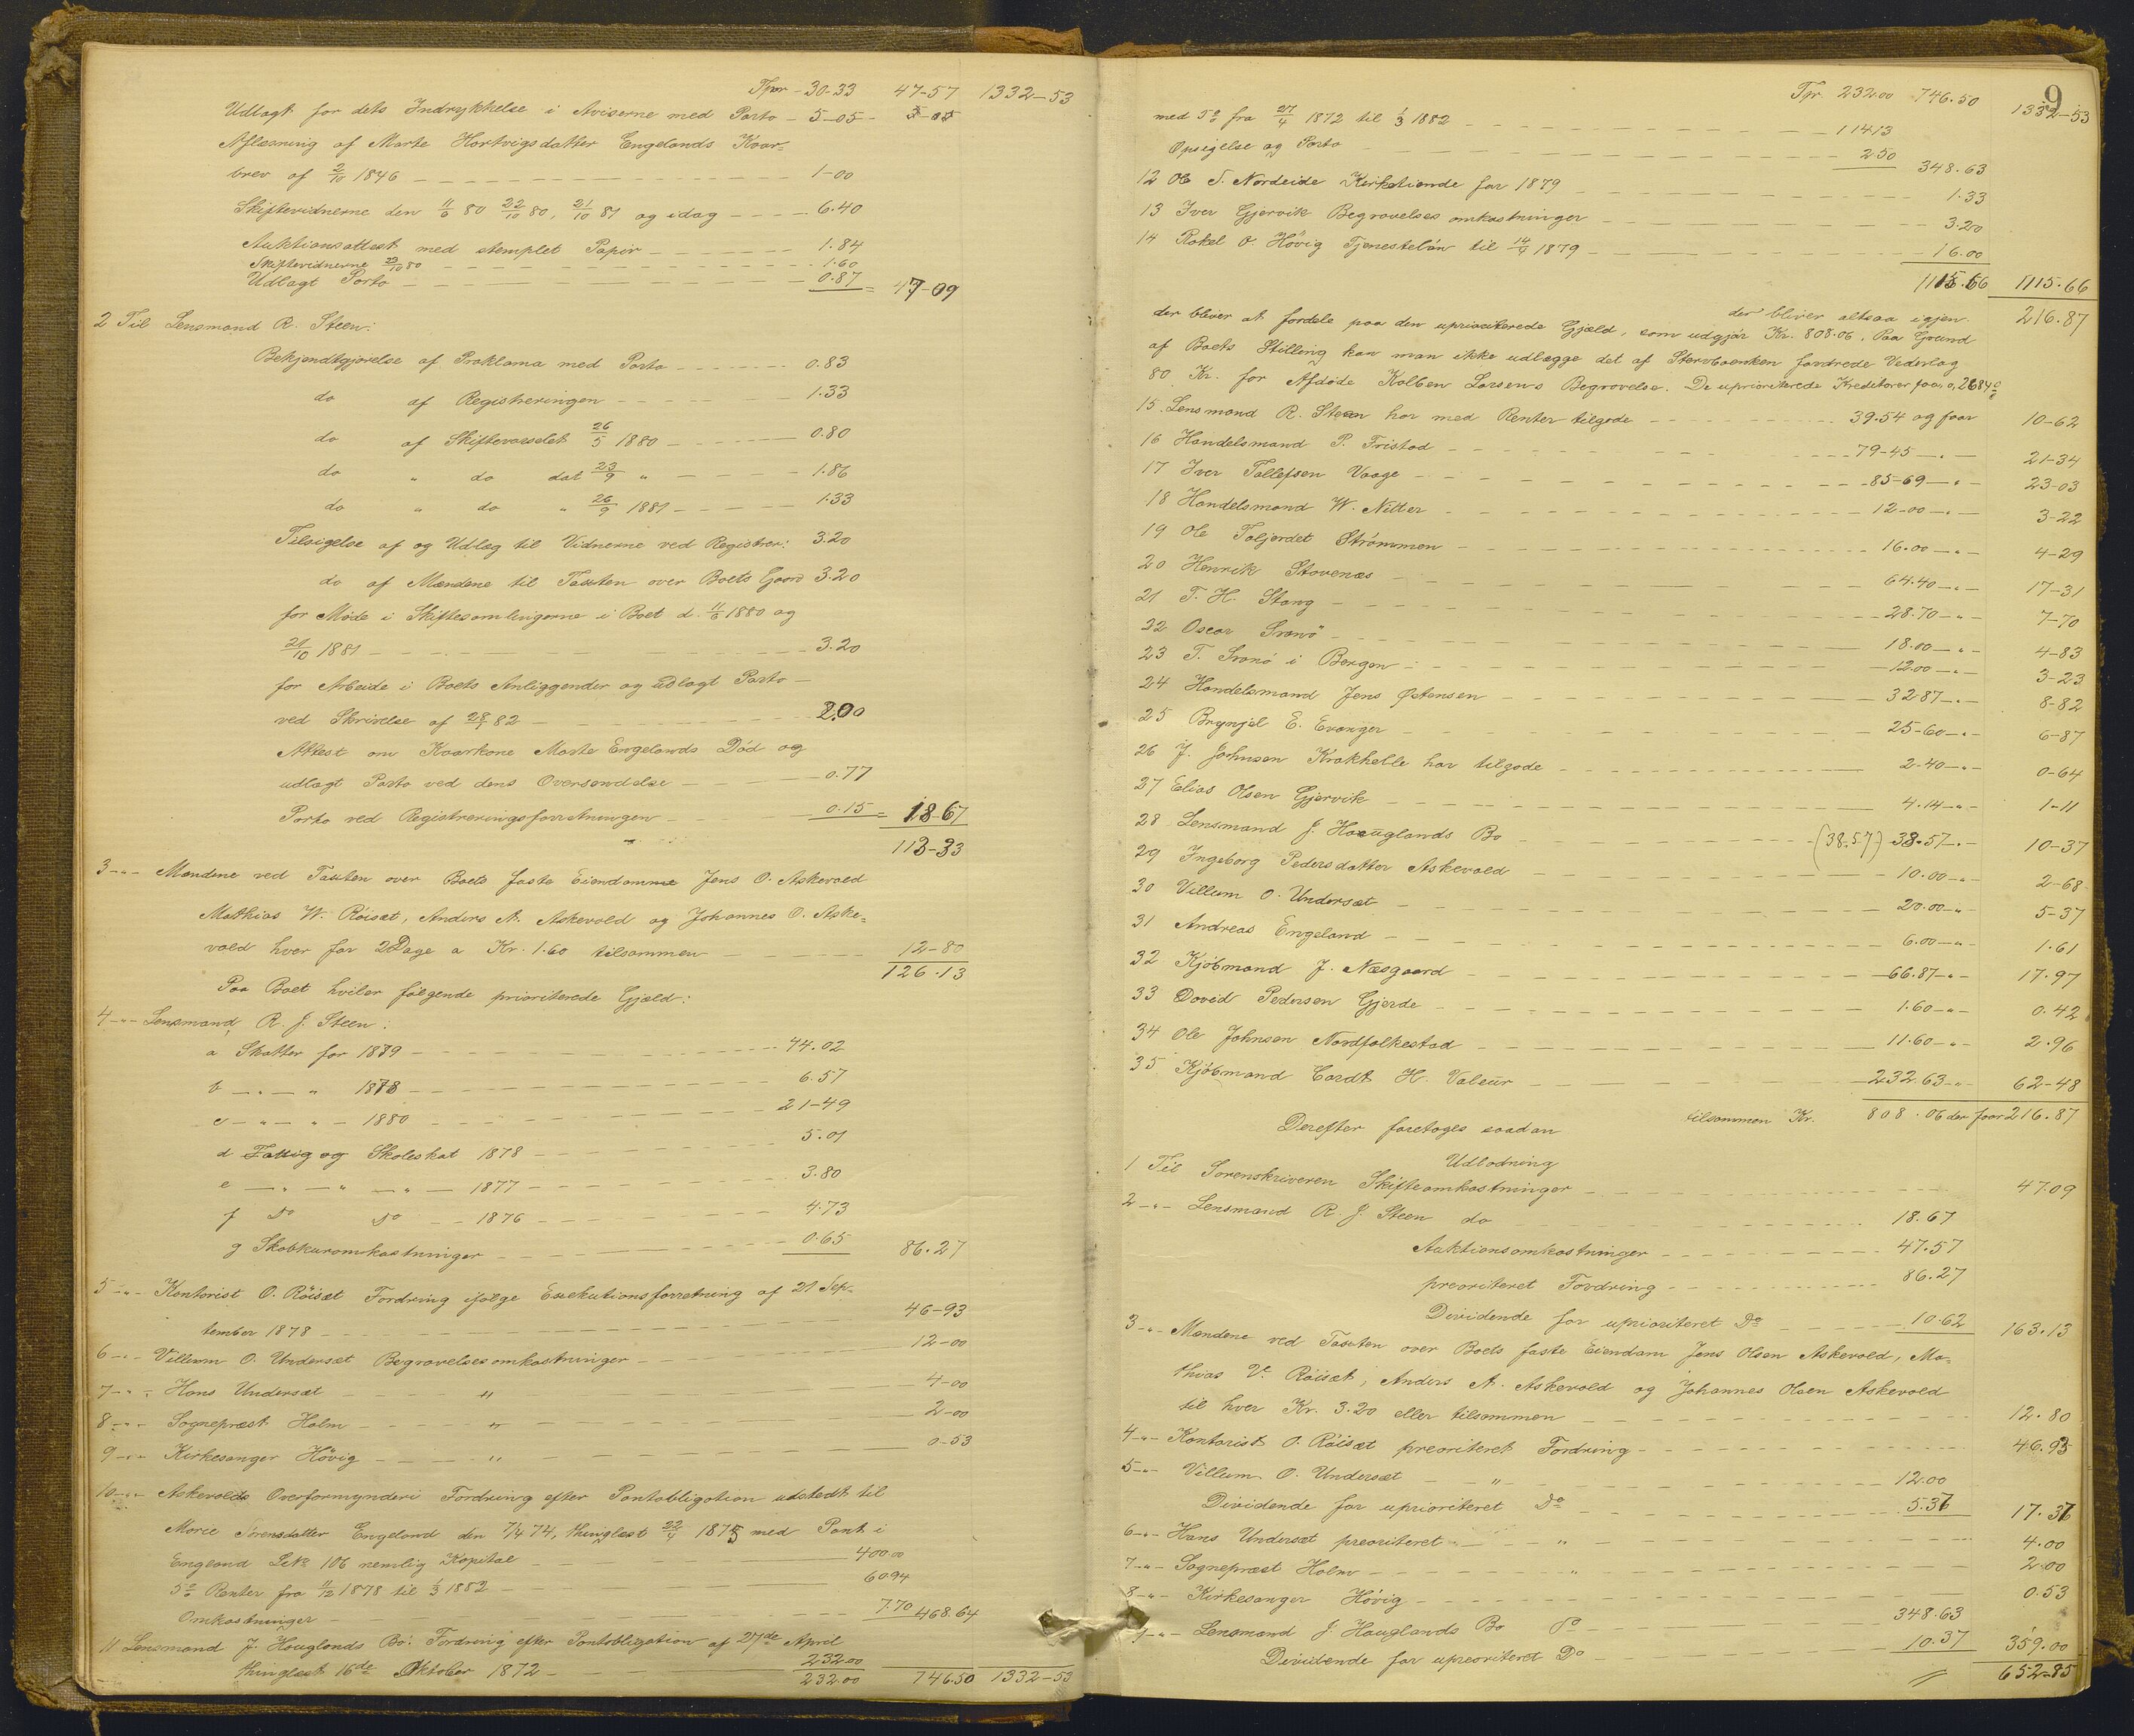 Tpor - 30-33 47-57 1332-53
Udlagt for dets Indrykkelse i Aviserne med Porto - 5-05 - 5-05
Aflæsning af Marte Hartvigsdatter Engelands Kaar=
brev af 2/10 1846 - 1-00
Skiftevidnerne den 11/6 80 22/10 80, 21/10 81 og idag - 6.40
Auktionsattest med stemplet Papir - 1.84
Skiftevidnerne 23/10 80 - 1.60
Udlagt Porto - 0.87 = 47-09
2 Til Lensmand R. Steen:
Bekjendtgjørelse af Proklama med Porto - 0.83
do af Registreringen - 1.33
do af Skiftevarselet 26/5 1880 - 0.80
do " do dat 23/9 " - 1.86
do " do " 26/9 1881 - 1.33
Tilsigelse af og Udlæg til Vidnerne ved Registrer: 3.20
do af Mændene til Taxten over Boets Gaard 3.20
for Møde i Skiftesamlingerne i Boet d. 11/6 1880 og
21/10 1881 - 3.20
for Arbeide i Boets Anliggender og udlagt Porto -
ved Skrivelse af 28/1 82 - 2.00
Attest om Kaarkone Marte Engelands Død og
udlagt Porto ved dens Oversendelse - 0.77
Porto ved Registreringsforretningen - 0.15 = 18-67
113-33
3 -"- Mændene ved Taxten over Boets faste Eiendomme Jens O. Askevold
Mathias W. Röisæt, Anders A. Askevold og Johannes O. Aske=
vold hver for 2 Dage a Kr. 1.60 tilsammen - 12-80
126.13
Paa Boet hviler følgende prioriterede Gjæld:
4 -"- Lensmand R. J. Steen:
a Skatter for 1879 - 44.02
b -"- " 1878 - 6.57
c -"-"- 1880 - 21-49
d Fattig og Skoleskat 1878 - 5.01
e -"-"-"- 1877 - 3.80
f Do Do - 1876 - 4.73
g Skabkuromkostninger - 0.65 86.27
5 -"- Kontorist O. Röisæt Fordring ifølge Exekutionsforretning af 21 Sep-
tember 1878 - 46-93
6 -"- Villum O. Undersæt Begravelsesomkostninger - 12-00
7 -"- Hans Undersæt - " - 4-00
8 -"- Sognepræst Holm - " - 2-00
9 -"- Kirkesanger Hövig - " - 0-53
10 -"- Askevolds Overformynderi Fordring efter Pantobligation udstedt til
Marie Sørensdatter Engeland den 7/4 74, thinglæst 22/4 1875 med Pant i
Engeland LNo 106 nemlig Kapital - 400.00
5% Renter fra 11/12 1878 til 1/3 1882 - 60.94
Omkostninger - 7.70 468.64
11 Lensmand J. Houglands Bo: Fordring efter Pantobligation af 27de April
thinglæst 16de Oktober 1872 - 232.00
232.00 746.50 1332-53
9
Tpr 232.00 746.50 1332-53
med 5% fra 27/4 1872 til 1/3 1882 - 114.13
Opsigelse og Porto - 2.50 348.63
12 Ole S. Nordeide Kirketiende for 1879 - 1.33
13 Iver Gjervik Begravelsesomkostninger - 3.20
14 Rakel O. Hövig Tjenesteløn til 14/4 1879 - 16.00
1115.66 1115.66
der bliver altsaa igjen 216.87
der bliver at fordele paa den uprioriterede Gjæld, som udgjør Kr. 808.06. Paa Grund
af Boets Stilling kan man ikke udlægge det af Stervboenken fordrede Vederlag
80 Kr. for Afdøde Kolben Larsens Begravelse. De uprioriterede Kreditorer faar 0,2684%
15. Lensmand R. Steen har med Renter tilgode - 39.54 og faar 10-62
16 Handelsmand P. Fristad - 79-45 -"- 21-34
17 Iver Tollefsen Vaage - 85-69 -"- 23-03
18 Handelsmand W. Nitter - 12-00 -"- 3-22
19 Ole Toljerdet Strömmen - 16.00 -"- 4-29
20 Henrik Stavenæs - 64.40 -"- 17-31
21 T. H. Stang - 28.70 -"- 7-70
22 Oscar Svanö - 18.00 -"- 4-83
23 T. Svanö i Bergen - 12.00 -"- 3-23
24 Handelsmand Jens Østensen - 32.87 -"- 8-82
25 Brynjel E. Evanger - 25-60 -"- 6-87
26 J. Johnsen Krakhelle har tilgode - 2-40 -"- 0-64
27 Elias Olsen Gjervik - 4.14 -"- 1-11
28 Lensmand J. Houglands Bo - (38.57) 38.57 -"- 10-37
29 Ingeborg Pedersdatter Askevold - 10.00 -"- 2-68
30 Villum O. Undersæt - 20.00 -"- 5-37
31 Andreas Engeland - 6.00 -"- 1.61
32 Kjøbmand J. Næsgaard - 66.87 -"- 17.97
33 David Pedersen Gjerde - 1.60 -"- 0.42
34 Ole Johnsen Nordfolkestad - 11.60 -"- 2.96
35 Kjøbmand Cardt H. Valeur - 232.63 -"- 62-48
tilsammen Kr. 808.06 der faar 216.87
Derefter foretoges saadan
Udlodning
1 Til Sorenskriveren Skifteomkostninger - 47.09
2 -"- Lensmand R. J. Steen do - 18.67
Auktionsomkostninger - 47.57
preoriteret Fordring - 86.27
Dividende for uprioriteret Do - 10.62 163.13
3 -"- Mændene ved Taxten over Boets faste Eiendom Jens Olsen Askevold, Ma-
thias V. Röisæt, Anders A. Askevold og Johannes Olsen Askevold
til hver Kr. 3.20 eller tilsammen - 12.80
4 -"- Kontorist O. Röisæt preoriteret Fordring - 46.93
5 -"- Villum O. Undersæt - " - 12.00
Dividende for uprioriteret Do - 5.37 17.37
6 -"- Hans Undersæt preoriteret - " - 4.00
7 -"- Sognepræst Holm - " - 2.00
8 -"- Kirkesanger Hövig - 0.53
9 -"- Lensmand J. Houglands Bo Do - 348.63
Dividende for upreoriteret Do - 10.37 359.00
652-85